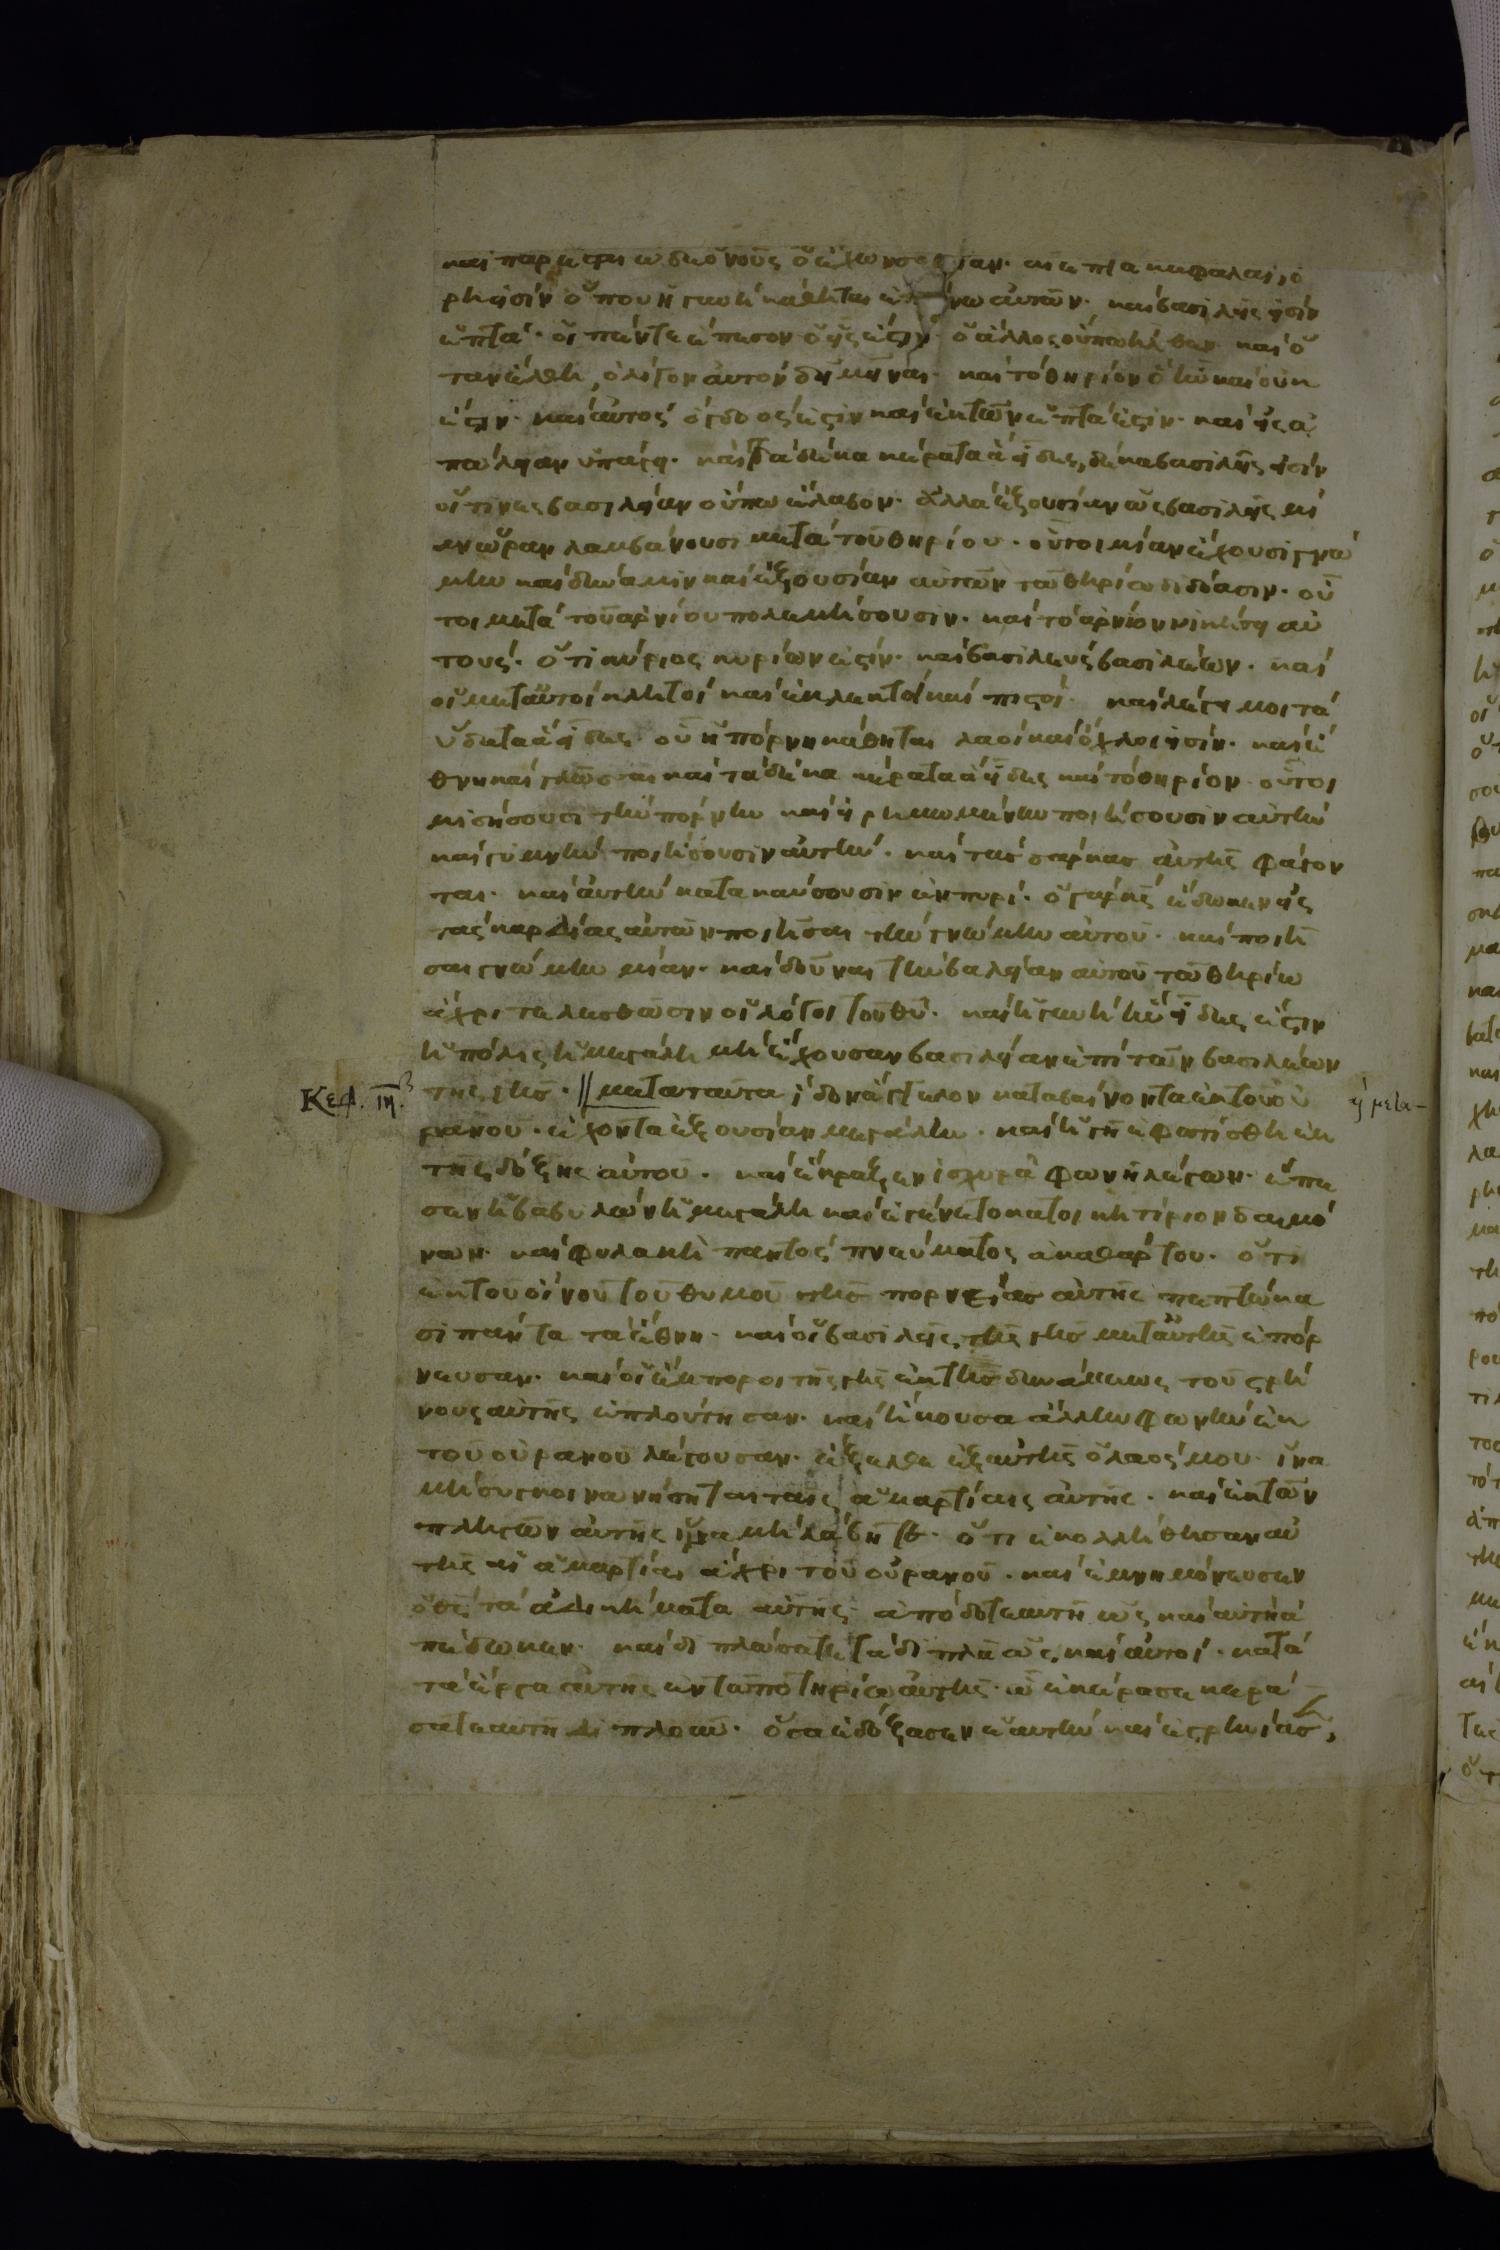 καὶ παρέσται ὧδε ὁ νοῦς ὁ ἔχων σοφίαν· αἱ ἑπτὰ κεφαλαὶ, ὄ
ρη εἰσὶν ὅπου ἡ γυνὴ κάθηται ἐπάνω αὐτῶν· καὶ βασιλεῖς εἰσὶν
ἑπτά· οἱ πέντε ἔπεσον ὁ εἷς ἐστιν· ὁ ἄλλος οὔπω ἦλθεν· καὶ ὅ
ταν ἔλθη, ὀλίγον αὐτὸν δεῖ μεῖναι· καὶ τὸ θηρίον ὃ ἦν καὶ οὐκ
ἔστιν· καὶ αὐτὸς ὄγδοός ἐστιν καὶ ἐκ τῶν ἑπτά ἐστιν· καὶ εἰς ἀ
πώλειαν ὑπάγει· καὶ τὰ δέκα κέρατα ἃ εἶδες, δέκα βασιλεῖς εἰσὶν
οἵτινες βασιλείαν οὔπω ἔλαβον· ἀλλὰ ἐξουσίαν ὡς βασιλεῖς μί
αν ὥραν λαμβάνουσι μετὰ τοῦ θηρίου· οὗτοι μίαν ἔχουσι γνώ
μην καὶ δύναμιν καὶ ἐξουσίαν αὐτῶν τῶ θηρίω διδόασιν· οὗ
τοι μετὰ τοῦ ἀρνίου πολεμήσουσιν· καὶ τὸ ἀρνίον νικήσει αὐ
τούς· ὅτι κύριος κυρίων ἐστίν· καὶ βασιλεὺς βασιλέων· καὶ
οἱ μεταὐτοῦ κλητοὶ καὶ ἐκλεκτοὶ καὶ πιστοί· καὶ λέγει μοι τὰ
ὕδατα ἃ εἶδες· οὗ ἡ πόρνη κάθηται λαοὶ καὶ ὄχλοι εἰσίν· καὶ ἔ
θνη καὶ γλῶσσαι καὶ τὰ δέκα κέρατα ἃ εἶδες καὶ τὸ θηρίον οὗτοι
μισήσουσι τὴν πόρνην καὶ ἠρημωμένην ποιήσουσιν αὐτὴν
καὶ γυμνὴν ποιήσουσιν αὐτήν· καὶ τὰς σάρκας αὐτῆς φάγον
ται· καὶ αὐτὴν κατακαύσουσιν ἐν πυρί· ὁ γὰρ θς ἔδωκεν εἰς
τὰς καρδίας αὐτῶν ποιῆσαι τὴν γνώμην αὐτοῦ· καὶ ποιῆ
σαι γνώμην μίαν· καὶ δοῦναι τὴν βαλείαν αὐτοῦ τῶ θηρίω
ἄχρι τελεσθῶσιν οἱ λόγοι τοῦ θυ· καὶ ἡ γυνὴ ἣν εἶδες ἔστιν
ἡ πόλις ἡ μεγάλη μὴ ἔχουσαν βασιλείαν ἐπὶ τῶν βασιλέων
τῆς γῆς· // μετὰ ταῦτα ἴδον ἄγγελον καταβαίνοντα ἐκ τοῦ οὐ
ρανοῦ· ἔχοντα ἐξουσίαν μεγάλην· καὶ ἡ γῆ ἐφωτίσθη ἐκ
τῆς δόξης αὐτοῦ· καὶ ἔκραξεν ἰσχυρᾶ φωνῆ λέγων· ἔπε
σεν ἡ βαβυλὼν ἡ μεγάλη καὶ ἐγένετο κατοικητίριον δαιμό
νων· καὶ φυλακὴ παντὸς πνεύματος ἀκαθάρτου· ὅτι
ἐκ τοῦ οἴνου τοῦ θυμοῦ τῆς πορνείας αὐτῆς πεπτώκα
σι πάντα τὰ ἔθνη· καὶ οἱ βασιλεῖς τῆς γῆς μεταὐτῆς ἐπόρ
νευσαν· καὶ οἱ ἔμποροι τῆς γῆς ἐκ τῆς δυνάμεως τοῦ στρή
νους αὐτῆς ἐπλούτησαν· καὶ ἤκουσα ἄλλην φωνὴν ἐκ
τοῦ οὐρανοῦ λέγουσαν· ἔξελθε ἐξαὐτῆς ὁ λαός μου· ἵνα
μὴ συγκοινωνήσηται ταῖς ἁμαρτίαις αὐτῆς· καὶ ἐκ τῶν
πληγῶν αὐτῆς ἵνα μὴ λάβητε· ὅτι ἐκολλήθησαν αὐ
τῆς αἱ ἁμαρτίαι ἄχρι τοῦ οὐρανοῦ· καὶ ἐμνημόνευσεν
ὁ θς τὰ ἀδικήματα αὐτῆς ἀπόδοτε αὐτῆ ὡς καὶ αὐτὴ ἀ
πέδωκεν· καὶ διπλώσατε τὰ διπλᾶ ὡς καὶ αὐτοί· κατὰ
τὰ ἔργα αὐτῆς ἐν τῶ ποτηρίω αὐτῆς· ὧ ἐκέρασε κερά
σατε αὐτῆ διπλοῦν· ὅσα ἐδόξασεν ἑαυτὴν καὶ ἐστρηνίασ,
Κεφ. ιη.